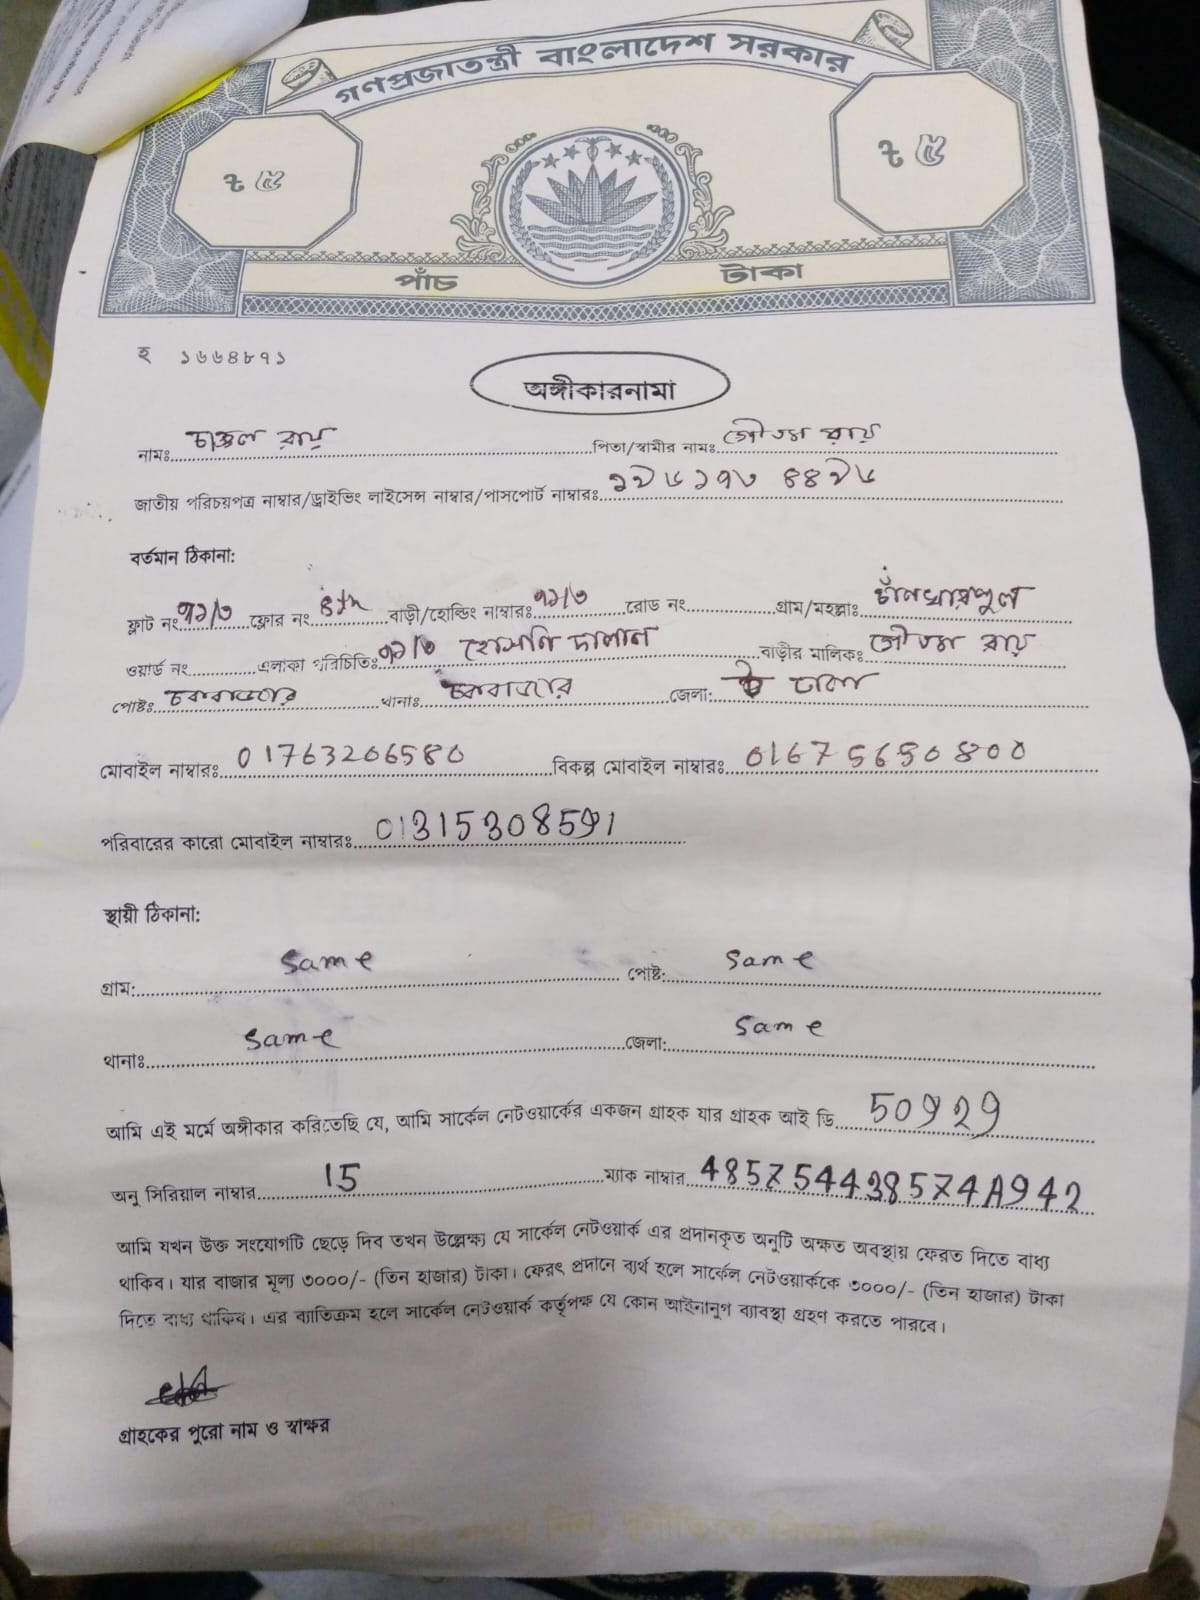 গণপ্রজাতন্ত্রী বাংলাদেশ সরকার
৳ ৫ ৳ ৫
পাঁচ টাকা
হ ১৬৬৪৮৭১
অঙ্গীকারনামা
নামঃ চঞ্চল রায় পিতা/স্বামীর নামঃ গৌতম রায়
জাতীয় পরিচয়পত্র নাম্বার/ড্রাইভিং লাইসেন্স নাম্বার/পাসপোর্ট নাম্বারঃ
বর্তমান ঠিকানা:
ফ্লাট নং ৭১/৩ ফ্লোর নং 8th বাড়ী/হোল্ডিং নাম্বারঃ ৭১/৩ রোড নং গ্রাম/মহল্লাঃ চাঁনখারপুল
ওয়ার্ড নং এলাকা পরিচিতিঃ ৭১/৩ হোসনি দালান বাড়ীর মালিকঃ গৌতম রায়
পোষ্টঃ চকবাজার থানাঃ চকবাজার জেলা: ঢাকা
মোবাইল নাম্বারঃ 01763206580 বিকল্প মোবাইল নাম্বারঃ 01675650800
পরিবারের কারো মোবাইল নাম্বারঃ 01315308591
স্থায়ী ঠিকানা:
গ্রাম: same পোষ্ট: same
থানাঃ same জেলা: same
আমি এই মর্মে অঙ্গীকার করিতেছি যে, আমি সার্কেল নেটওয়ার্কের একজন গ্রাহক যার গ্রাহক আই ডি 50929
অনু সিরিয়াল নাম্বার 15 ম্যাক নাম্বার 485754438574A942
আমি যখন উক্ত সংযোগটি ছেড়ে দিব তখন উল্লেক্ষ্য যে সার্কেল নেটওয়ার্ক এর প্রদানকৃত অনুটি অক্ষত অবস্থায় ফেরত দিতে বাধ্য
থাকিব। যার বাজার মূল্য ৩০০০/- (তিন হাজার) টাকা। ফেরৎ প্রদানে ব্যর্থ হলে সার্কেল নেটওয়ার্ককে ৩০০০/- (তিন হাজার) টাকা
দিতে বাধ্য থাকিব। এর ব্যাতিক্রম হলে সার্কেল নেটওয়ার্ক কর্তৃপক্ষ যে কোন আইনানুগ ব্যাবস্থা গ্রহণ করতে পারবে।
গ্রাহকের পুরো নাম ও স্বাক্ষর